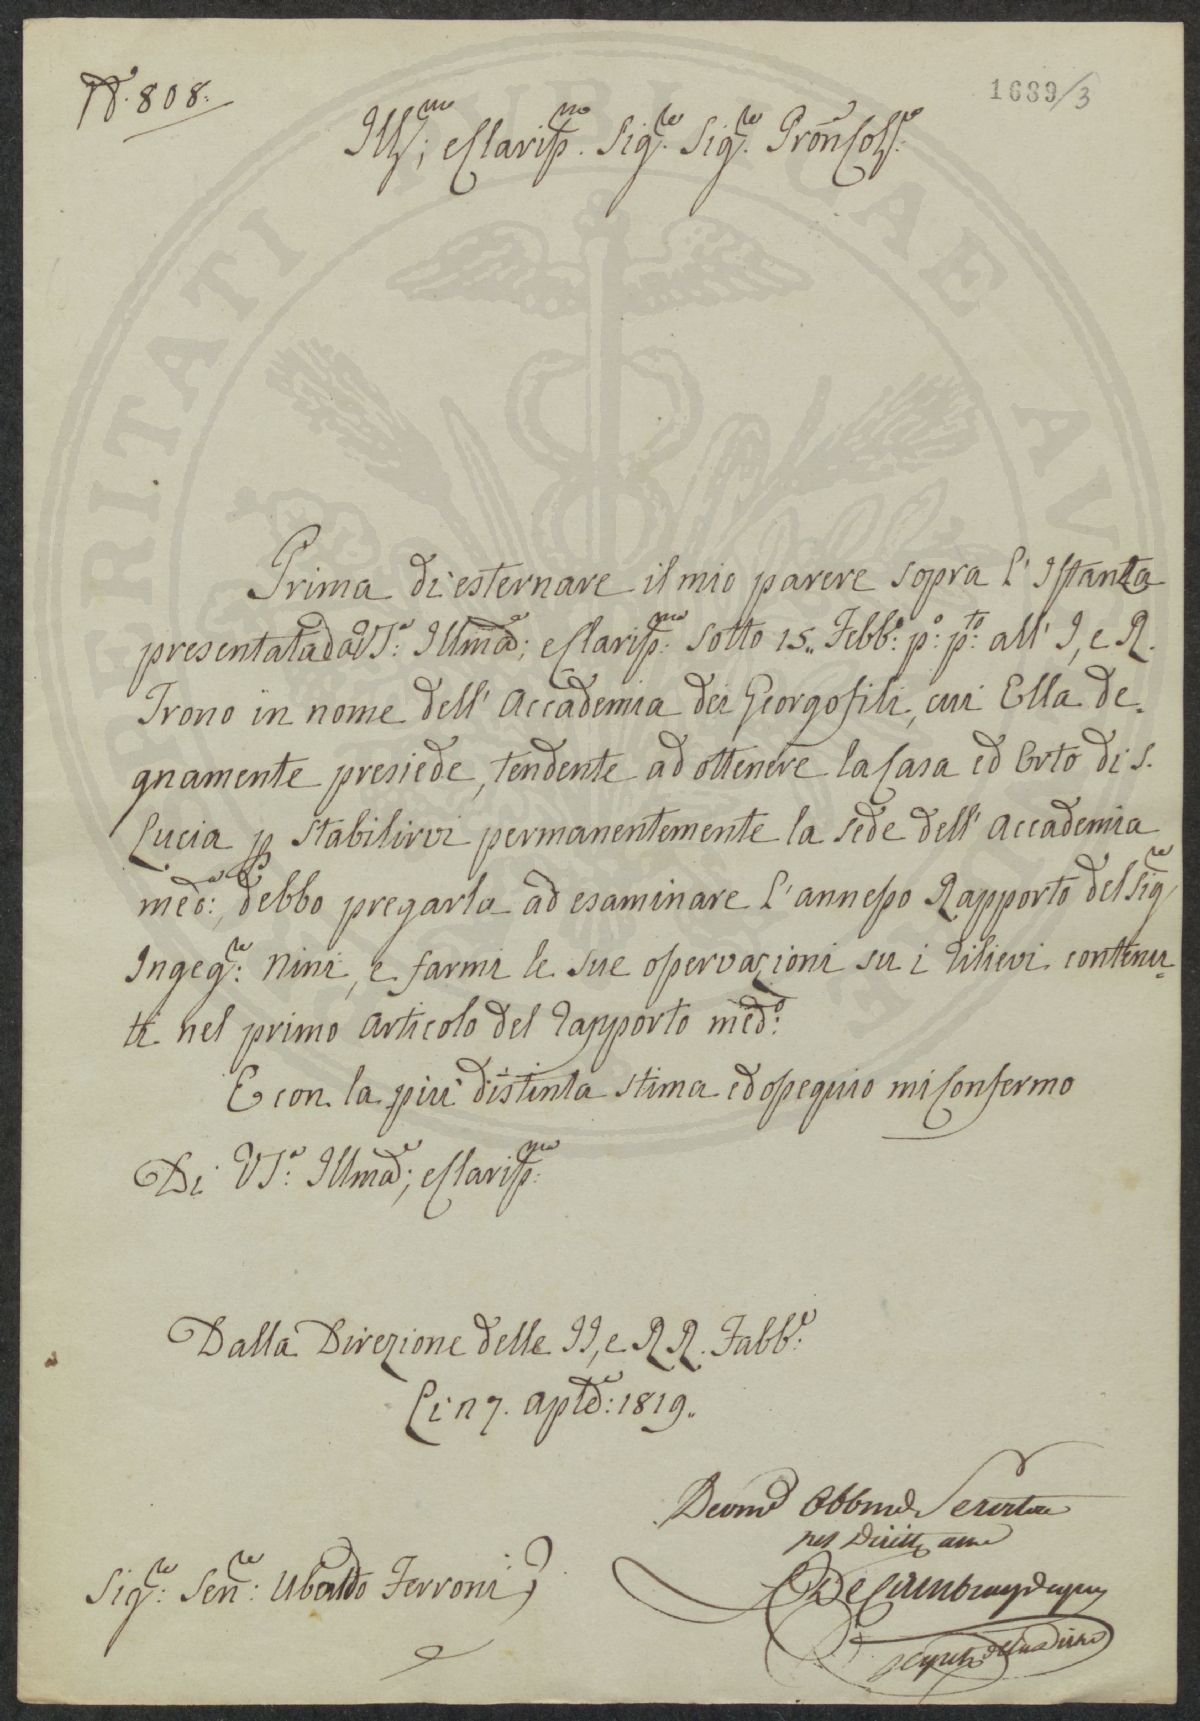 N. 808.
1689/3
Ill.mo; e Clariss.mo Sig.re Sig.re Pron Col.mo
Prima di esternare il mio parere sopra l'Istanza
presentata da V.S.a Ill.ma; e Clariss.ma sotto 15.. Febb.o p.o p.to all' I, e R.
Trono in nome dell'Accademia dei Georgofili, cui Ella de-
gnamente presiede, tendente ad ottenere la Casa ed Orto di S.
Lucia p stabilirvi permanentemente la sede dell'Accademia
med.a; debbo pregarla ad esaminare l'annesso Rapporto del Sig.re
Ingeg.re Nini, e farmi le sue osservazioni su i rilievi contenu-
ti nel primo articolo del rapporto med.o
E con la più distinta stima ed ossequio mi confermo
Di V.S.a Ill.ma; e Clariss.ma
Dalla Direzione delle II, e RR. Fabb.e
Li n 7. aple: 1819..
Devmo Obbmo Servitore
per Dirett
De Cambray Digny
Sig.re Sen.re Ubaldo Ferroni
PUBLICAE